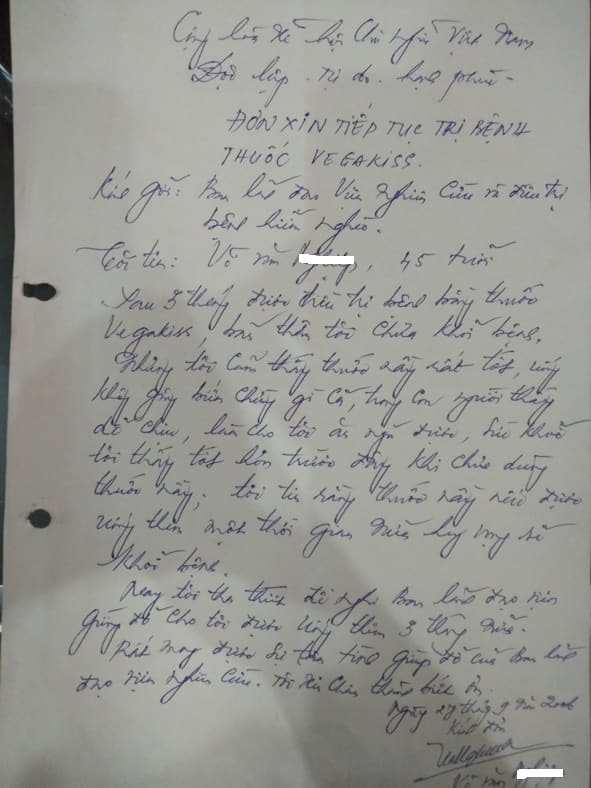 Cộng hòa Xã hội Chủ nghĩa Việt Nam
Độc lập - Tự do - hạnh phúc -
ĐƠN XIN TIẾP TỤC TRỊ BỆNH
THUỐC VEGAKISS.
Kính gởi: Ban lãnh đạo Viện Nghiên Cứu và điều trị
bệnh hiểm nghèo.
Tôi tên: Võ văn , 45 tuổi
Sau 3 tháng được điều trị bệnh bằng thuốc
Vegakiss, bản thân tôi chưa khỏi bệnh.
Nhưng tôi cảm thấy thuốc nầy rất tốt, uống
không gây biến chứng gì cả, trong con người thấy
dễ chịu, làm cho tôi ăn ngủ được, sức khoẻ
tôi thấy tốt hơn trước đây khi chưa dùng
thuốc nầy, tôi tin rằng thuốc nầy nếu được
uống thêm một thời gian nữa hy vọng sẽ
khỏi bệnh.
Nay tôi tha thiết đề nghị Ban lãnh đạo viện
giúp đỡ cho tôi được uống thêm 3 tháng nữa.
Rất mong được sự tận tình giúp đỡ của Ban lãnh
đạo viện nghiên cứu. Tôi xin chân thành biết ơn.
Ngày 27 tháng 9 năm 2006
Kính đơn
Võ văn